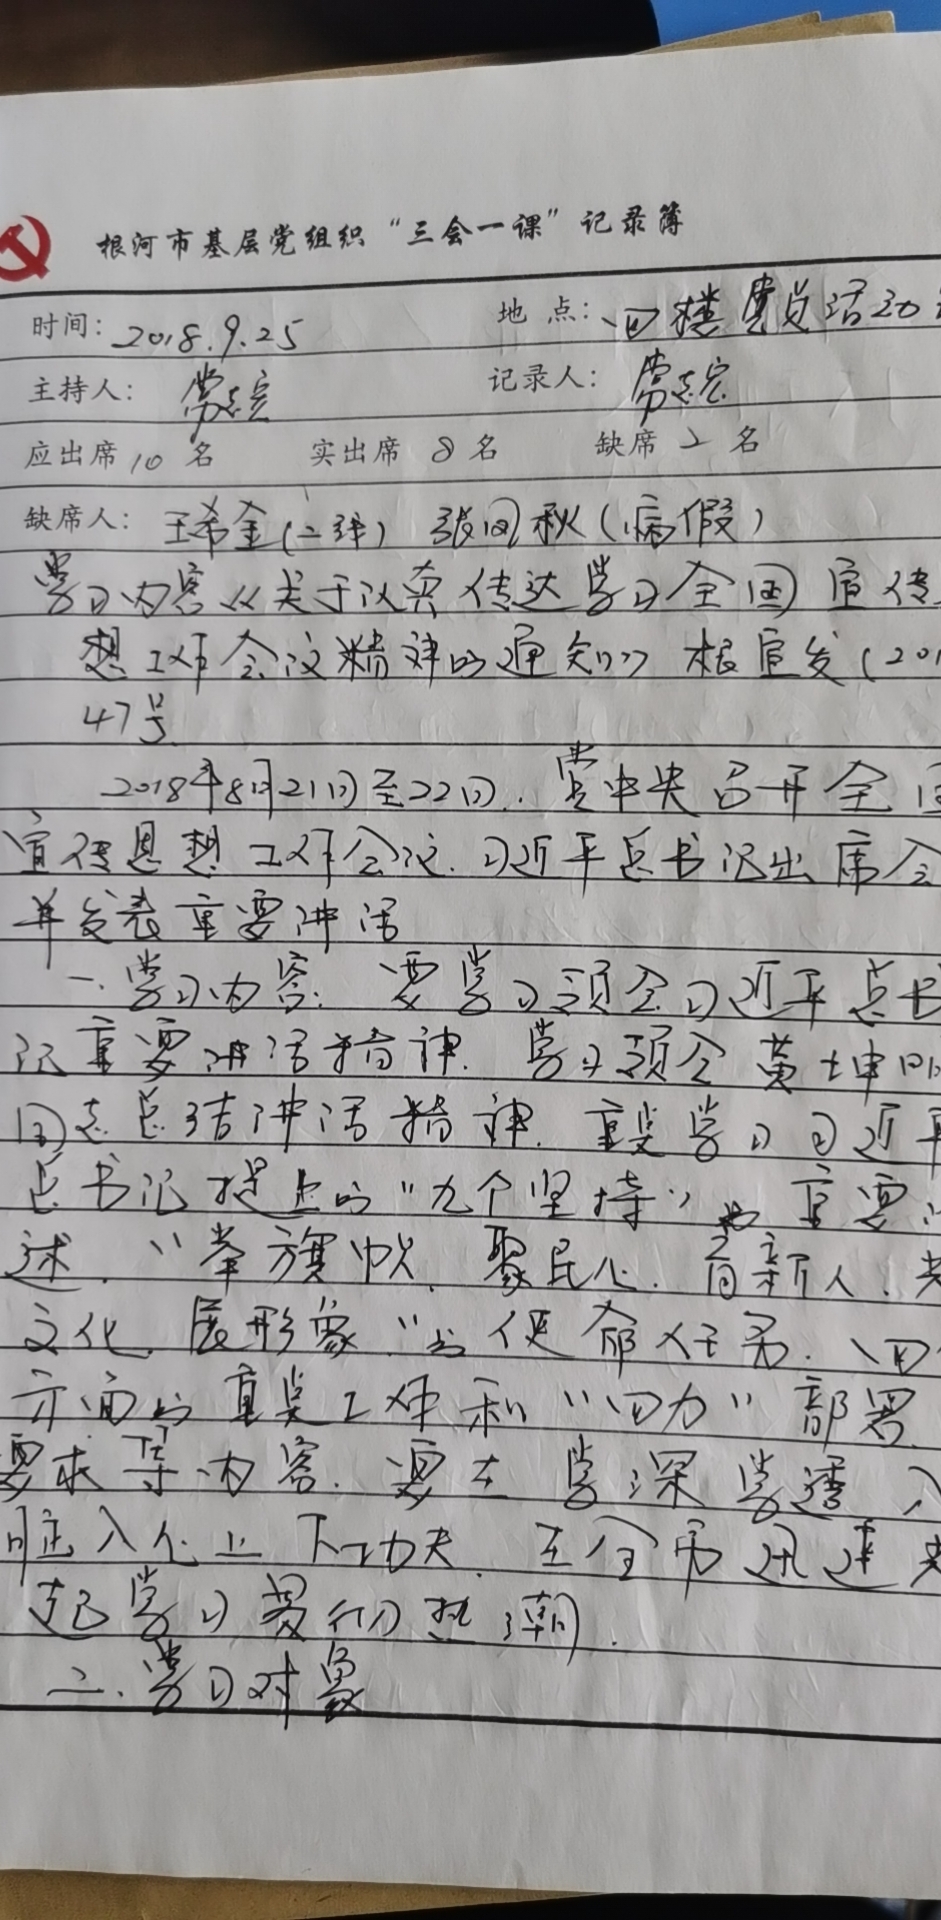 根河市基层党组织“三会一课”记录簿
时间: 2018.9.25 地 点: 四楼党员活动
主持人: 常志宏 记录人: 常志宏
应出席 10 名 实出席 8 名 缺席 2 名
缺席人: 王希金(二
病假)
学习内容《关于认真传达学习全国宣传
想工作会议精神的通知》根宣发(201
47号
2018年8月21日至22日.党中央召开全
宣传思想工作会议.习近平总书记出席会
并发表重要讲话
一.学习内容:要学习领会习近平总书
记重要讲话精神.学习领会黄坤明
同志总结讲话精神.重点学习习近平
总书记提出的“九个坚持”的重要
述.“举旗帜.聚民心.育新人.
文化.展形象”的使命任务.四
方面的重点工作和“四力”部署.
要求等内容.要在学深学透入
脑入心上下功夫.在全市迅速
起学习贯彻热潮.
二.学习对象